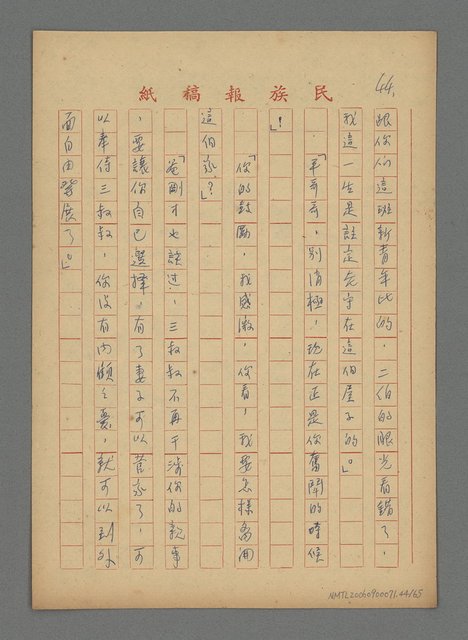 民族報稿紙
44.
跟你们這班新青年比的,二伯的眼光看錯了,
我這一生是註定死守在這個屋子的。」
「平哥哥,別消極,現在正是你奮鬪的時候
!」
「你的鼓勵,我感激,你看,我要怎樣多用
這個家?」
「爸剛才也談过,三叔叔不再干涉你的親事
,要讓你自己選擇,有了妻子可以管家了,可
以奉侍三叔叔,你沒有內顧之憂,就可以到外
面自由發展了。」
NMTL20060900071.44/65